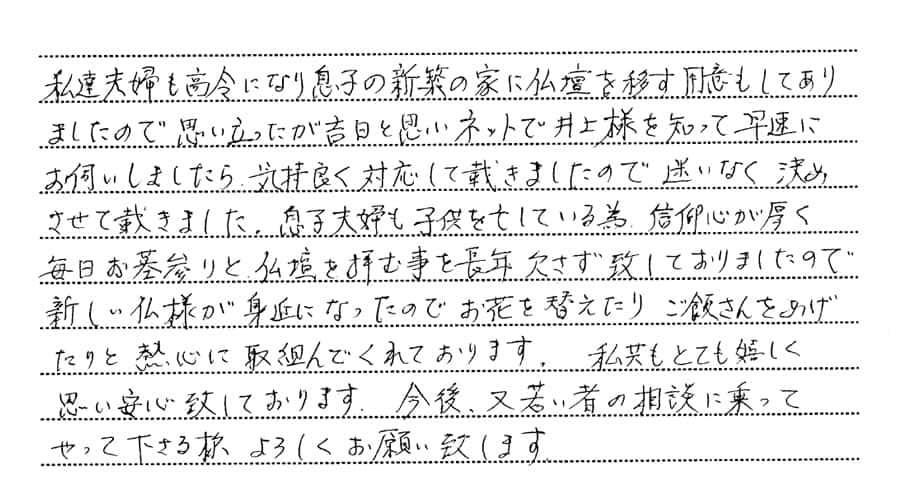 私達夫婦も高令になり息子の新築の家に仏壇を移す用意もしてあり
ましたので思い立ったが吉日と思いネットで井上様を知って早速に
お伺いしましたら、気持良く対応して載きましたので迷いなく決め
させて載きました。息子夫婦も子供を亡している為、信仰心が厚く
毎日お墓参りと仏壇を拝む事を長年欠さず致しておりましたので
新しい仏様が身近になったのでお花を替えたりご飯さんをあげ
たりと熱心に取組んでくれております。私共もとても嬉しく
思い安心致しております。今後、又若い者の相談に乗って
やって下さる様、よろしくお願い致します